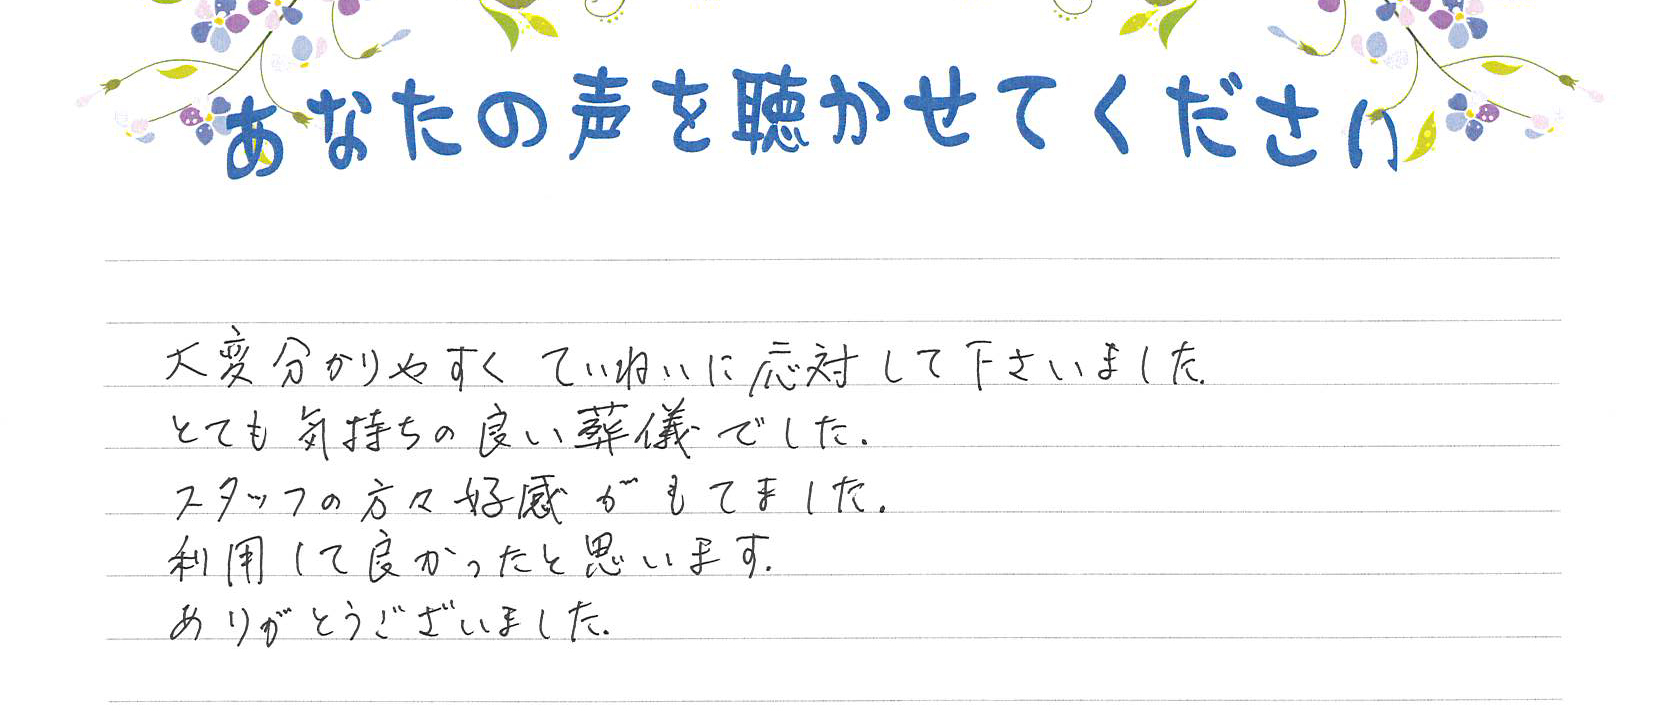 あなたの声を聴かせてください
大変分かりやすく ていねいに応対して下さいました.
とても気持ちの良い葬儀でした.
スタッフの方々好感がもてました.
利用して良かったと思います.
ありがとうございました.